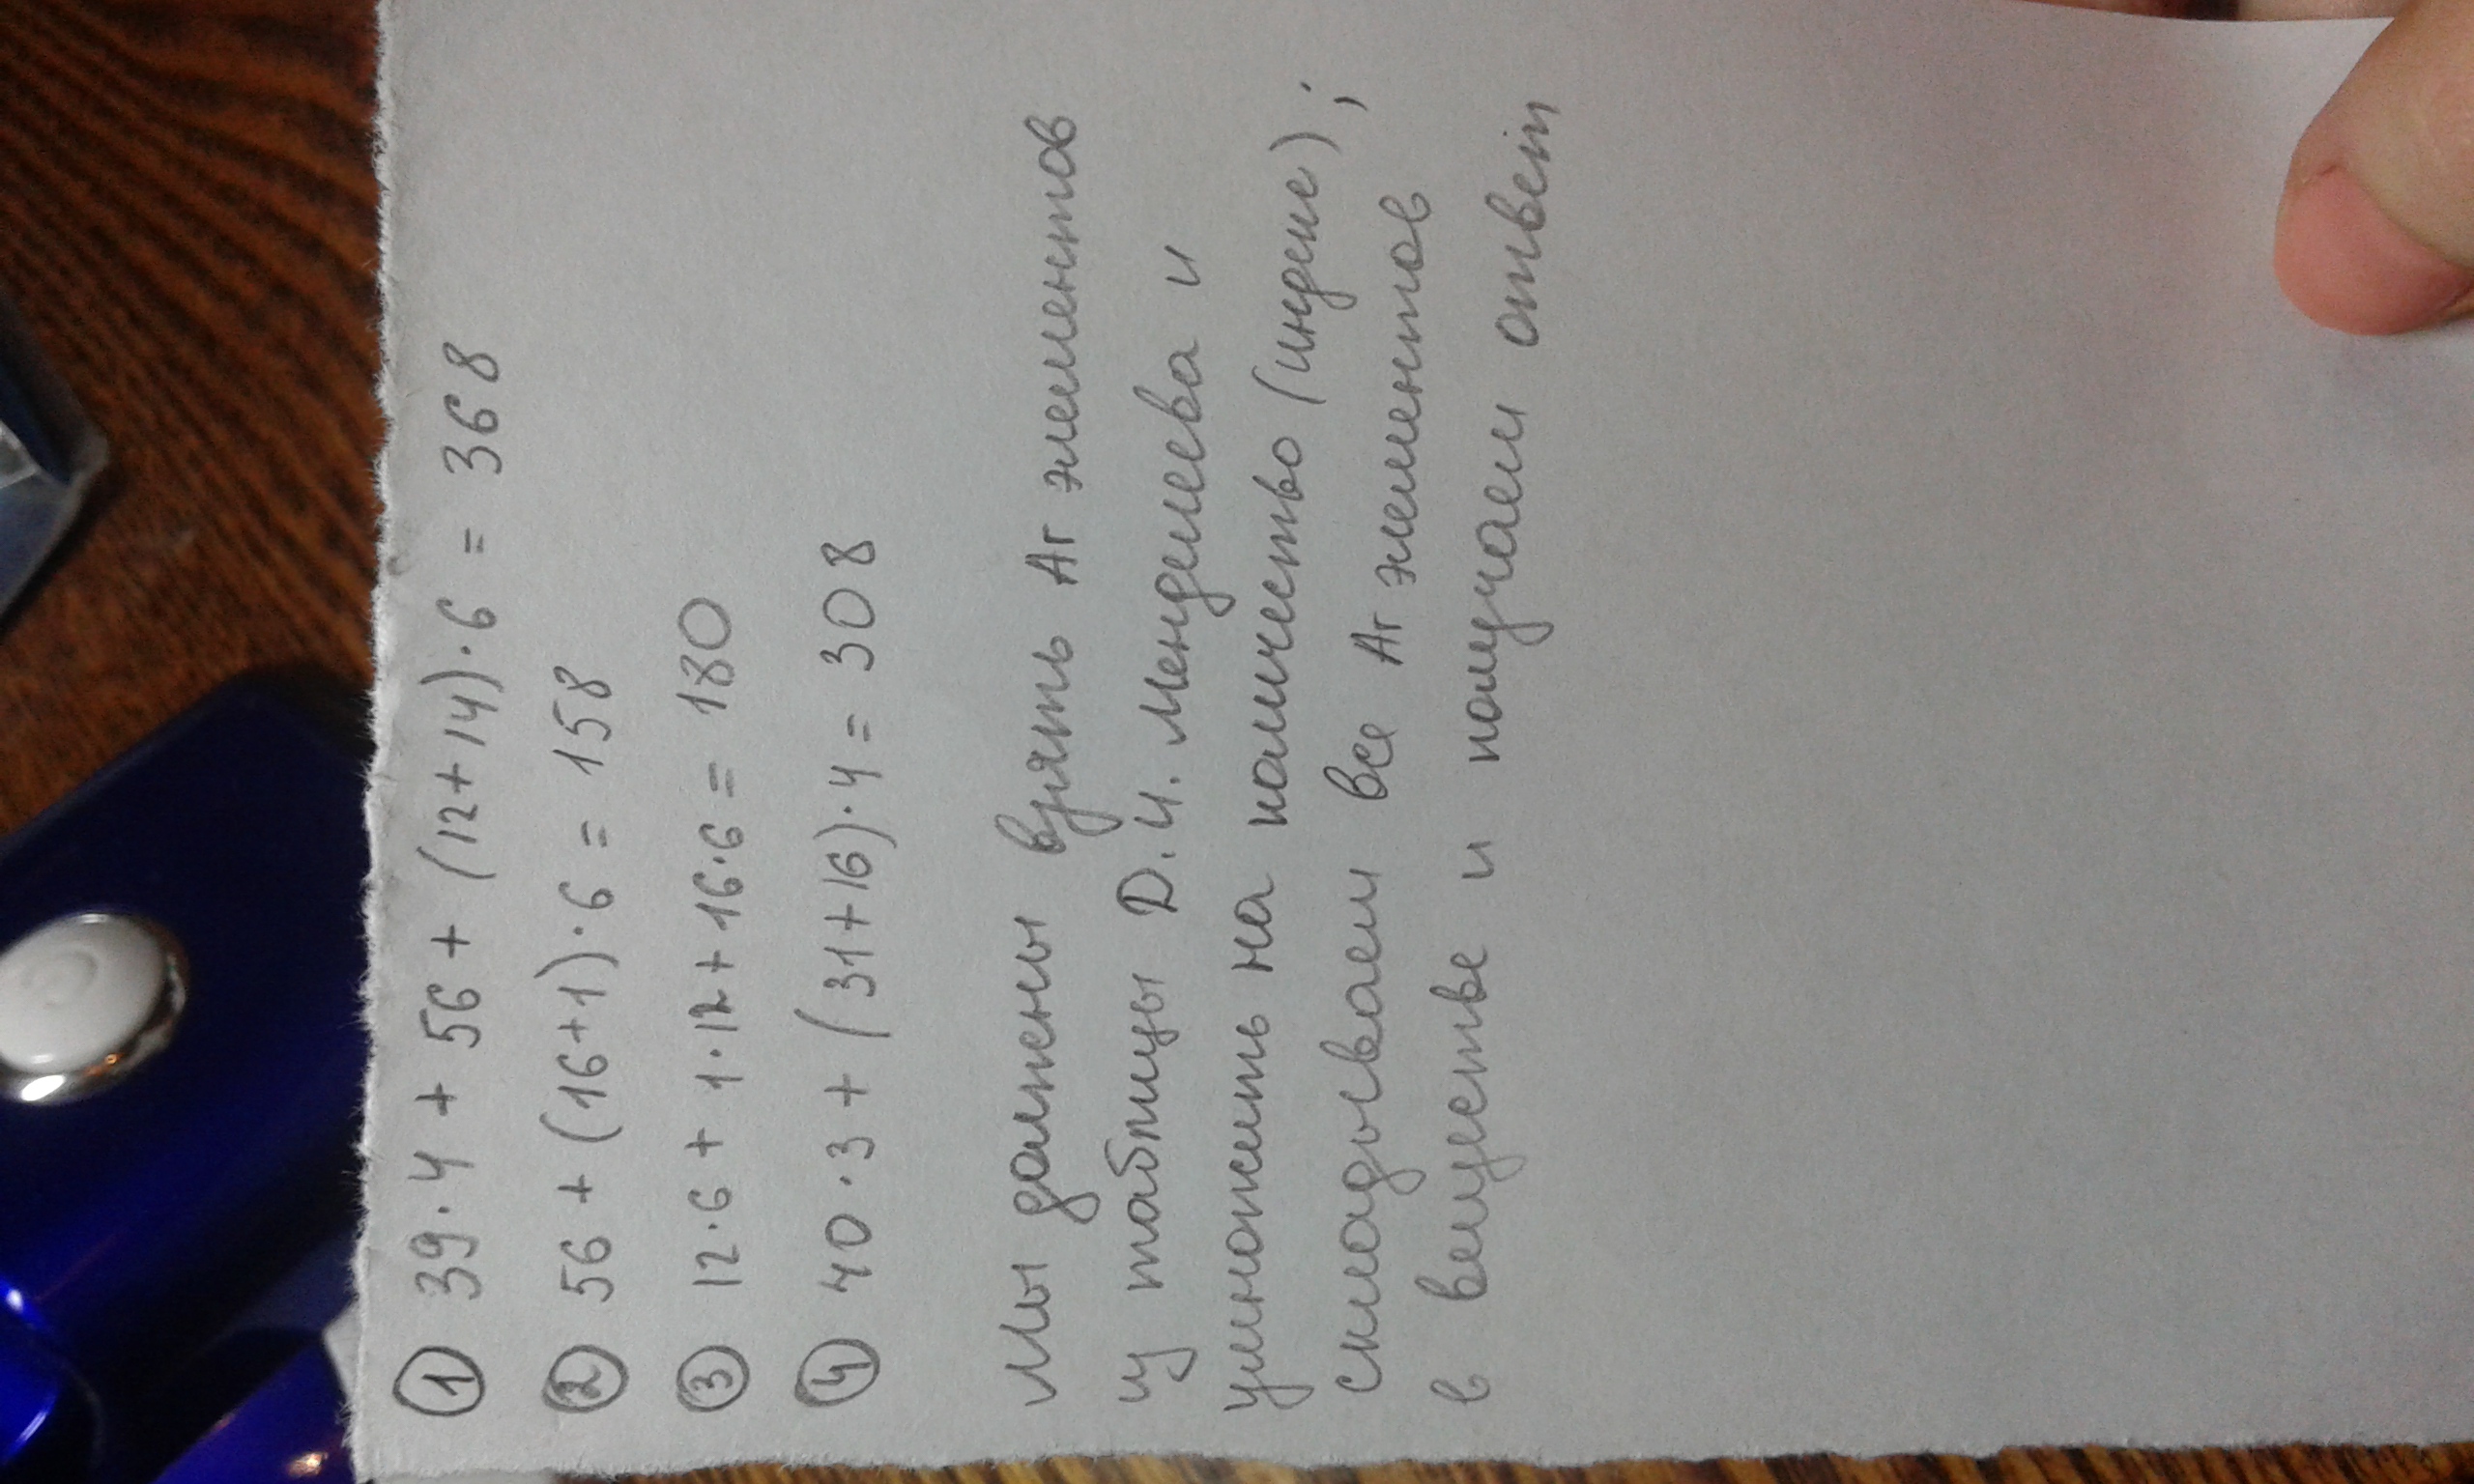 ① 39·4 + 56 + (12+14)·6 = 368
② 56 + (16+1)·6 = 158
③ 12·6 + 1·12 + 16·6 = 180
④ 40·3 + (31+16)·4 = 308
Мы должены взять Ar элементов
из таблицы Д.И. Менделеева и
умножить на количество (индекс);
складываем все Ar элементов
в веществе и получаем ответ